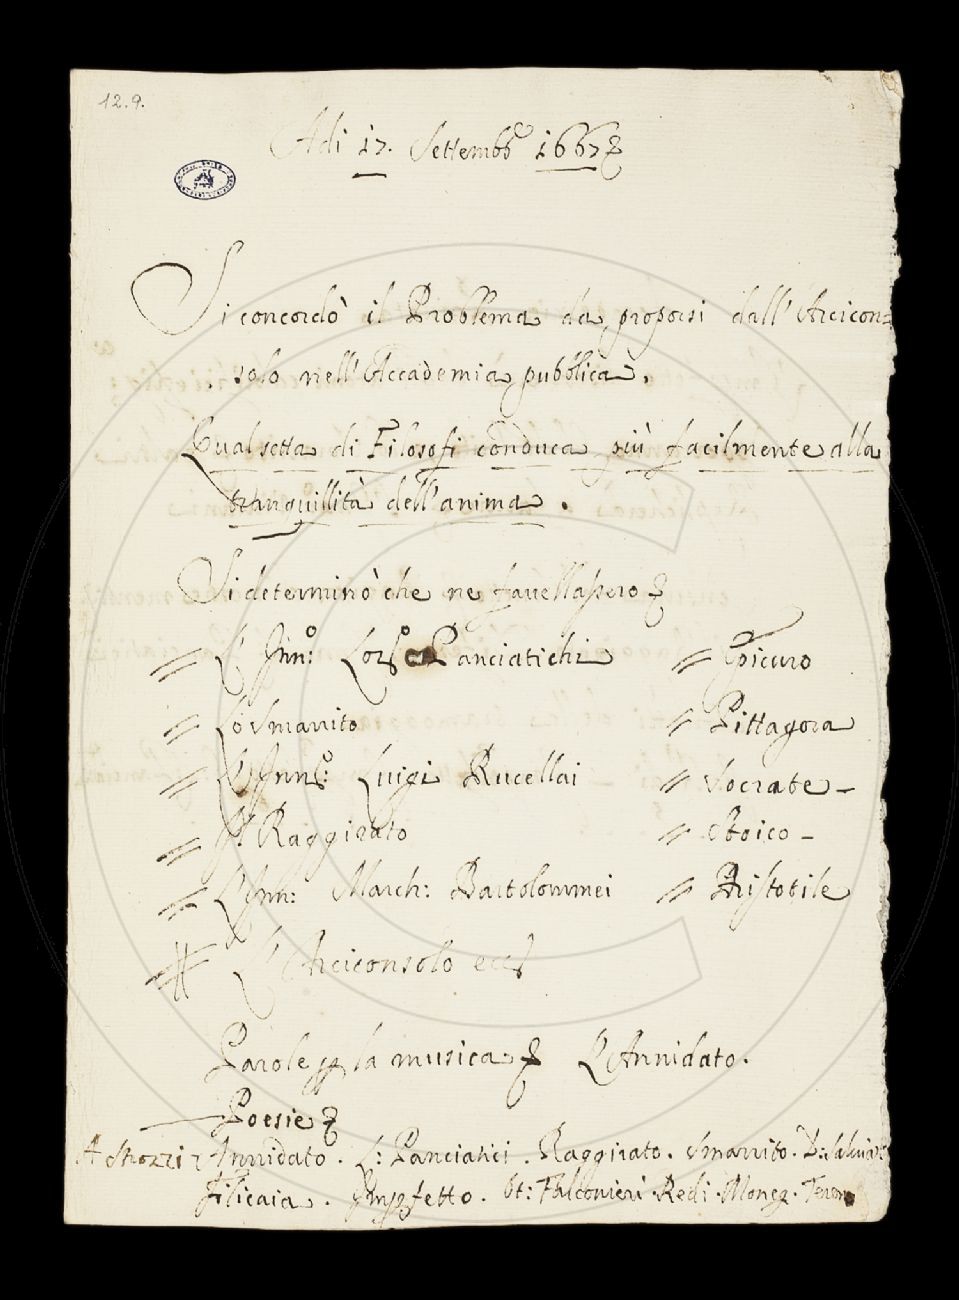 12.9.
Adi 17. Settemb.e 1667
Si concordò il Problema da proporsi dall'Arcicon=
solo nell'Accademia pubblica.
Qual setta di Filosofi conduca più facilmente alla
tranquillità dell'anima.
Si determinò che ne favellassero
L'Inn:o Lor:o Panciatichi // Epicuro
Lo Smarrito // Pittagora
L'Inn:o Luigi Rucellai // Socrate -
Il Raggirato // Stoico -
L'Inn: March: Bartolommei // Aristotile
L'Arciconsolo
Parole p la musica L'Annidato.
Poesie
A Strozzi Annidato. L: Panciatici. Raggirato. Smarrito. D: Salviati
Filicaia. Impfetto. Ot: Falconieri Redi.